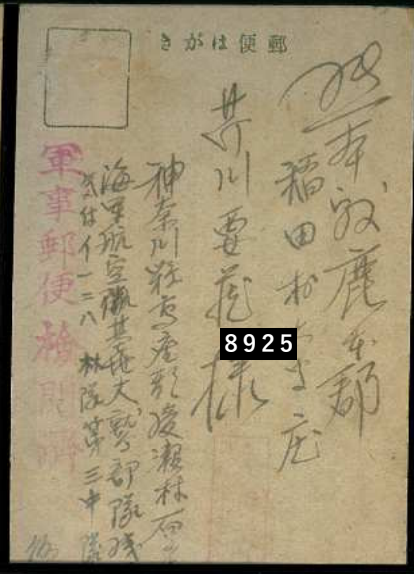 郵便はがき
熊本縣鹿本郡
稲田村 庄
芹川要蔵様
8925
神奈川縣高座郡綾瀬村
海軍航空 基地大鷲部隊
気付イ一二八 林隊第三中隊
軍事郵便 検閲濟